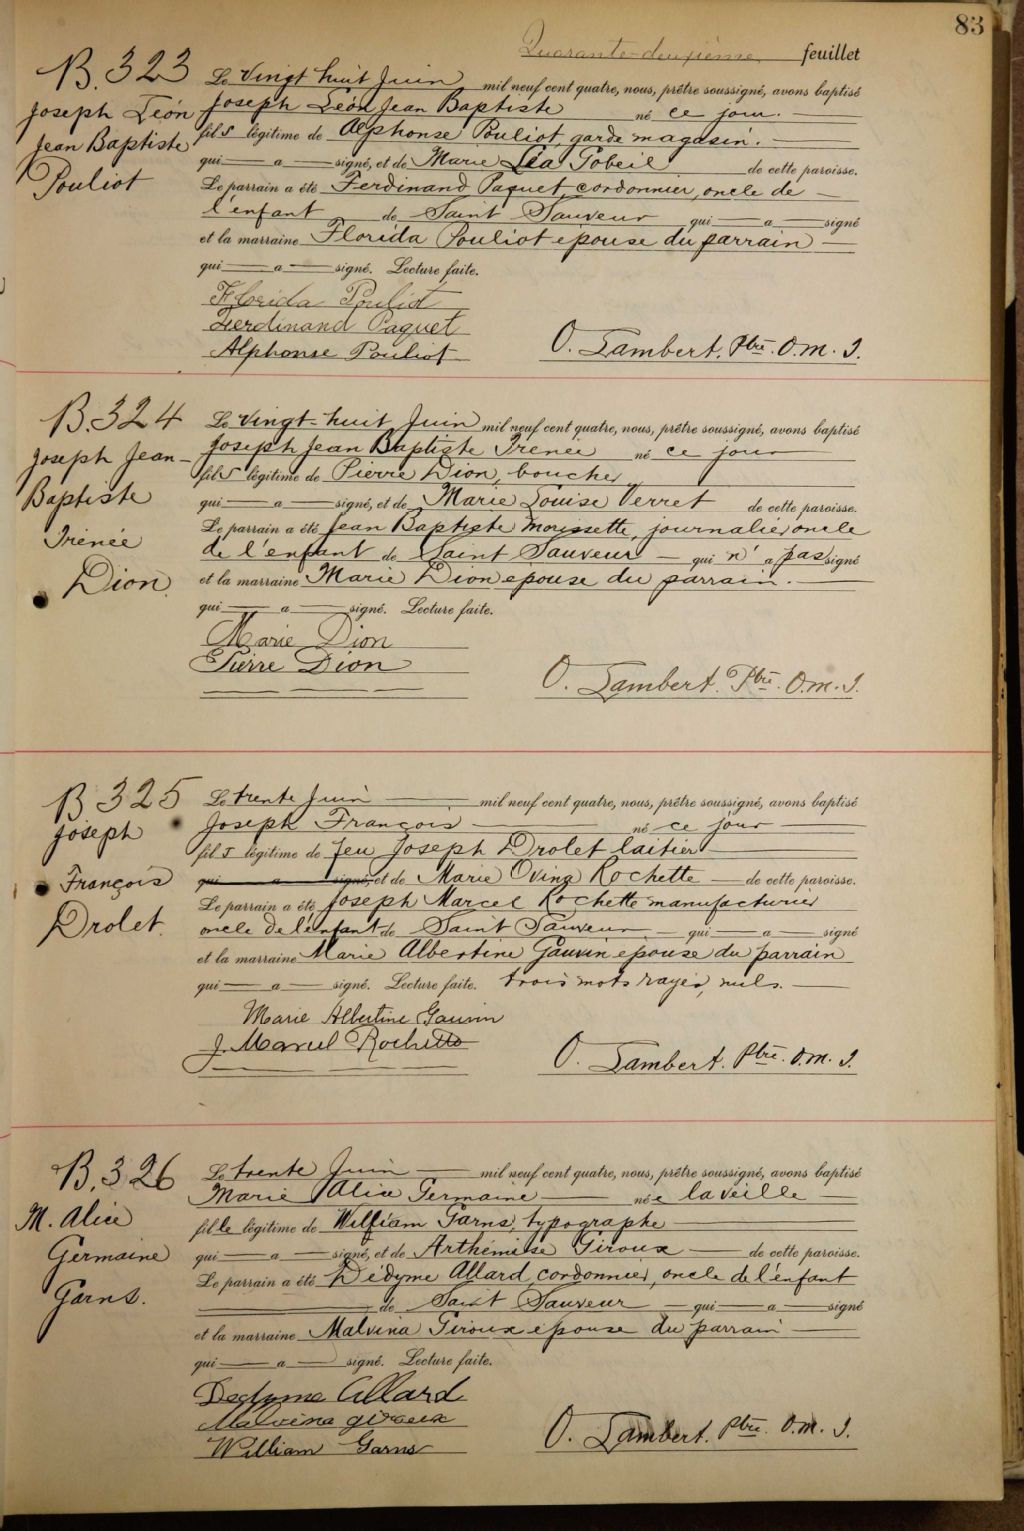 83
Quarante-deuxième feuillet
B. 323
Joseph Léon
Jean Baptiste
Pouliot
Le vingt huit Juin mil neuf cent quatre, nous, prêtre soussigné, avons baptisé
Joseph Léon Jean Baptiste né ce jour.
fils légitime de Alphonse Pouliot, garde magasin.
qui — a — signé, et de Marie Léa Gobeil de cette paroisse.
Le parrain a été Ferdinand Paquet, cordonnier, oncle de
l'enfant de Saint Sauveur qui — a — signé
et la marraine Florida Pouliot épouse du parrain
qui — a — signé. Lecture faite.
Florida Pouliot
Ferdinand Paquet
Alphonse Pouliot
O. Lambert. Ptre. O.m.I.
B. 324
Joseph Jean-
Baptiste
Irénée
Dion.
Le vingt-huit Juin mil neuf cent quatre, nous, prêtre soussigné, avons baptisé
Joseph Jean Baptiste Irenée né ce jour
fils légitime de Pierre Dion, boucher
qui — a — signé, et de Marie Louise Verret de cette paroisse.
Le parrain a été Jean Baptiste Morissette, journalier oncle
de l'enfant de Saint Sauveur — qui n'a pas signé
et la marraine Marie Dion épouse du parrain.
qui — a — signé. Lecture faite.
Marie Dion
Pierre Dion
O. Lambert. Ptre. O.m.I.
B 325
Joseph
François
Drolet.
Le trente Juin — mil neuf cent quatre, nous, prêtre soussigné, avons baptisé
Joseph François né ce jour
fils légitime de feu Joseph Drolet laitier
qui — a — signé, et de Marie Ovina Rochette — de cette paroisse.
Le parrain a été Joseph Marcel Rochette manufacturier
oncle de l'enfant de Saint Sauveur — qui — a — signé
et la marraine Marie Albertine Gauvin épouse du parrain
qui — a — signé. Lecture faite. trois mots rayés, nuls.
Marie Albertine Gauvin
J. Marcel Rochette
O. Lambert. Ptre. O.m.I.
B. 326
M. Alice
Germaine
Garns.
Le trente Juin — mil neuf cent quatre, nous, prêtre soussigné, avons baptisé
Marie Alice Germaine — née la veille
fille légitime de William Garns, typographe
qui — a — signé, et de Arthémise Giroux — de cette paroisse.
Le parrain a été Dédyme Allard, cordonnier, oncle de l'enfant
de Saint Sauveur — qui — a — signé
et la marraine Malvina Giroux épouse du parrain
qui — a — signé. Lecture faite.
Dedyme Allard
Malvina giroux
William Garns
O. Lambert. Ptre. O.m.I.